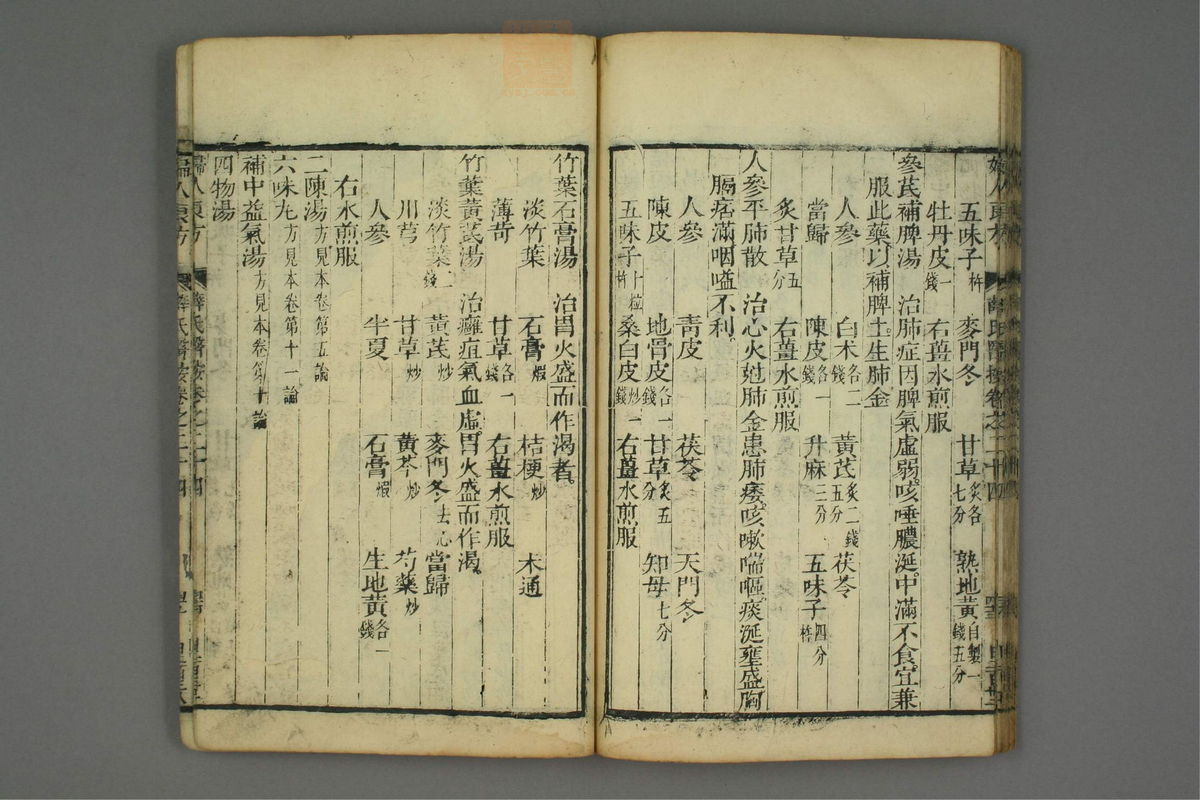 五味子杵　麥門冬　甘草炙各七分　熟地黃自製一錢五分
牡丹皮一錢　右薑水煎服
參芪補脾湯　治肺症因脾氣虛弱咳唾膿涎中滿不食宜兼
服此藥以補脾土生肺金
人參　白朮各二錢　黃芪炙二錢五分　茯苓
當歸　陳皮各一錢　升麻三分　五味子四分杵
炙甘草五分　右薑水煎服
人參平肺散　治心火尅肺金患肺痿咳嗽喘嘔痰涎壅盛胸
膈痞滿咽嗌不利
人參　青皮　茯苓　天門冬
陳皮　地骨皮各一錢　甘草炙五分　知母七分
五味子十粒杵　桑白皮炒一錢　右薑水煎服
竹葉石膏湯　治胃火盛而作渴者
淡竹葉　石膏煆　桔梗炒　木通
薄苛　甘草各一錢　右薑水煎服
竹葉黃芪湯　治癰疽氣血虛胃火盛而作渴
淡竹葉二錢　黃芪炒　麥門冬去心　當歸
川芎　甘草炒　黃芩炒　芍藥炒
人參　半夏　石膏煆　生地黃各一錢
右水煎服
二陳湯方見本卷第五論
六味丸方見本卷第十一論
補中益氣湯方見本卷第十論
四物湯
婦人良方　薛氏醫按卷之二十四